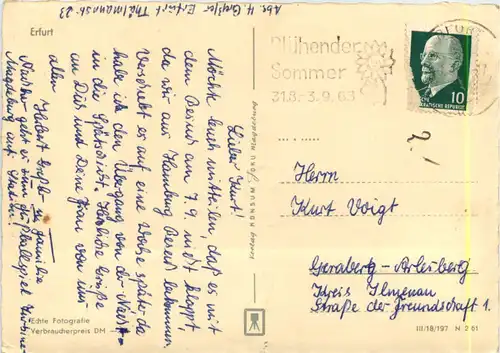 Abs. H. Greßler Erfurt Thälmannstr. 23
Erfurt
Blühender
Sommer
31.8.-3.9.63
ERFURT
DEMOKRATISCHE REPUBLIK
10
Lieber Kurt!
Möchte Euch mitteilen, daß es mit
dem Besuch am 7.9. nicht klappt,
da wir aus Hamburg Besuch bekommen.
Verschiebt es auf eine Woche später, da
habe ich den Übergang von der Nacht-
in die Spätschicht. Herzliche Grüße
an Dich und Deine Frau von uns
allen Hubert Greßler u. Familie
Magdeburg auf Station!
Herrn
Kurt Voigt
Geraberg-Arlesberg
Kreis Ilmenau
Straße der Freundschaft 1.
Echte Fotografie
Verbraucherpreis DM
III/18/197 N 2 61